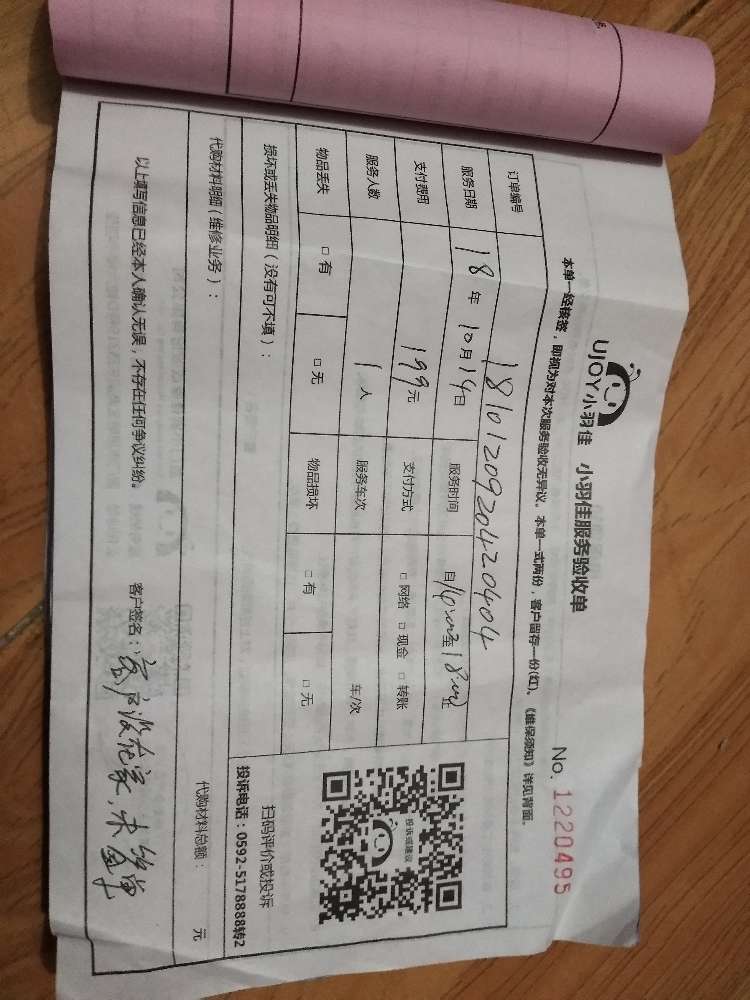 UJOY小羽佳 小羽佳服务验收单 No. 1220495
本单一经核签，即视为对本次服务验收无异议。本单一式两份，客户留存一份(红)。《维保须知》详见背面。
订单编号 181012092042040​4
服务日期 18年10月14日 服务时间 自14:00至18:00
支付费用 199元 支付方式 □网络 □现金 □转账
服务人数 1人 服务车次 车/次
物品丢失 □有 □无 物品损坏 □有 □无
损坏或丢失物品明细（没有可不填）：
投诉或建议
扫码评价或投诉
投诉电话：0592-5178888转2
代购材料明细（维修业务）： 代购材料总额： 元
以上填写信息已经本人确认无误，不存在任何争议纠纷。 客户签名：客户没在家，未